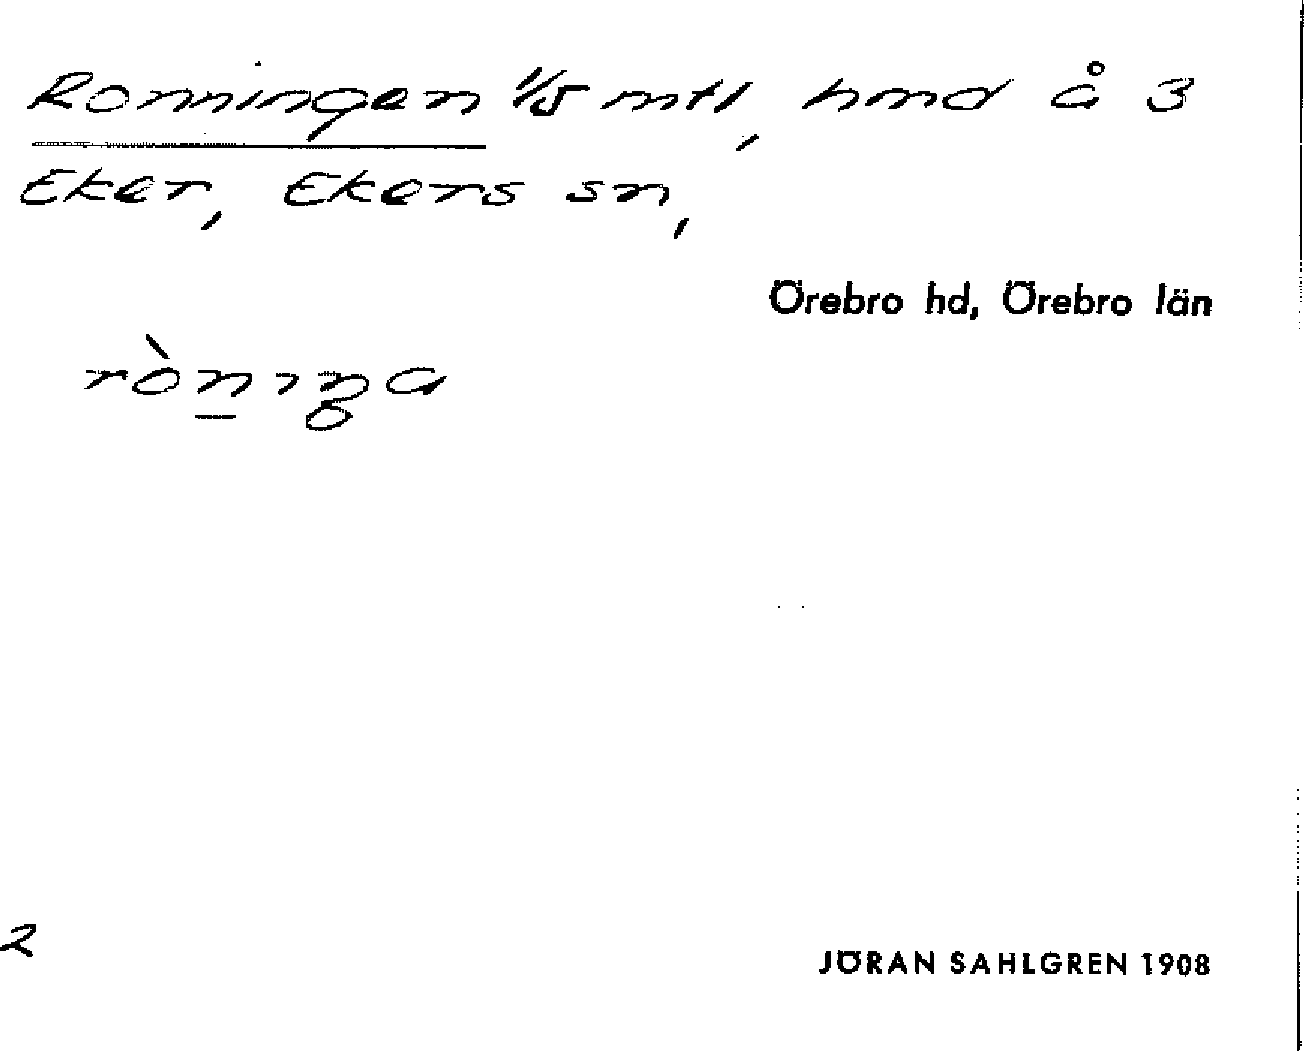 Ronningen 1/5 mtl, hmd å 3
Eker, Ekers sn,
Örebro hd, Örebro län
ròn̲ıŋa
2
JÖRAN SAHLGREN 1908